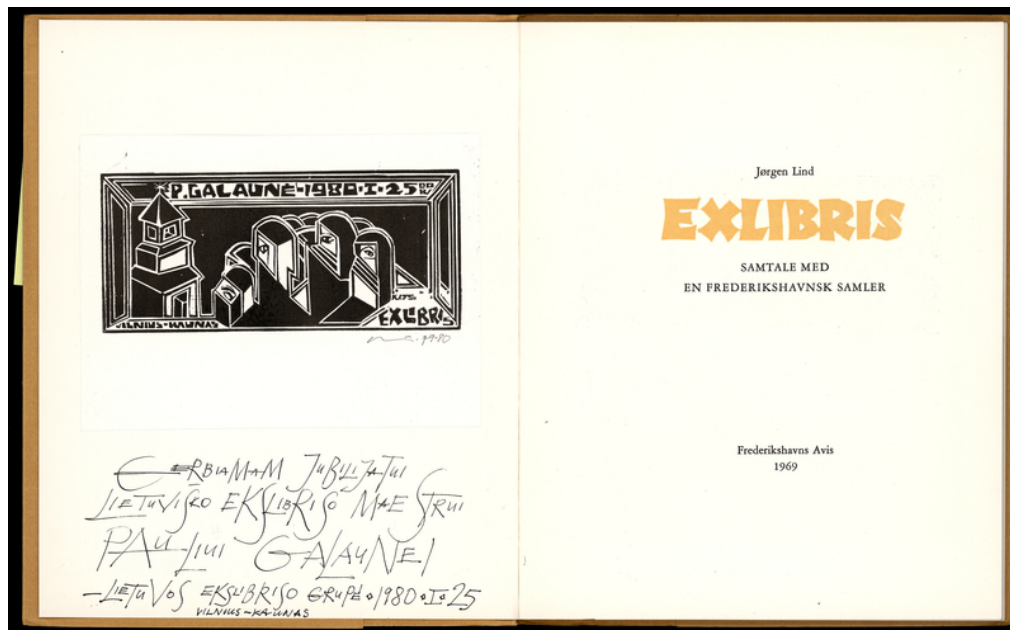 P. GALAUNĖ-1980·I·25
VILNIUS-KAUNAS
EXLIBRIS
GERBIAMAM JUBILIJATUI
LIETUVIŠKO EKSLIBRISO MAESTRUI
PAULIUI GALAUNEI
-LIETUVOS EKSLIBRISO GRUPĖ·1980·I·25
VILNIUS-KAUNAS
Jørgen Lind
EXLIBRIS
SAMTALE MED
EN FREDERIKSHAVNSK SAMLER
Frederikshavns Avis
1969